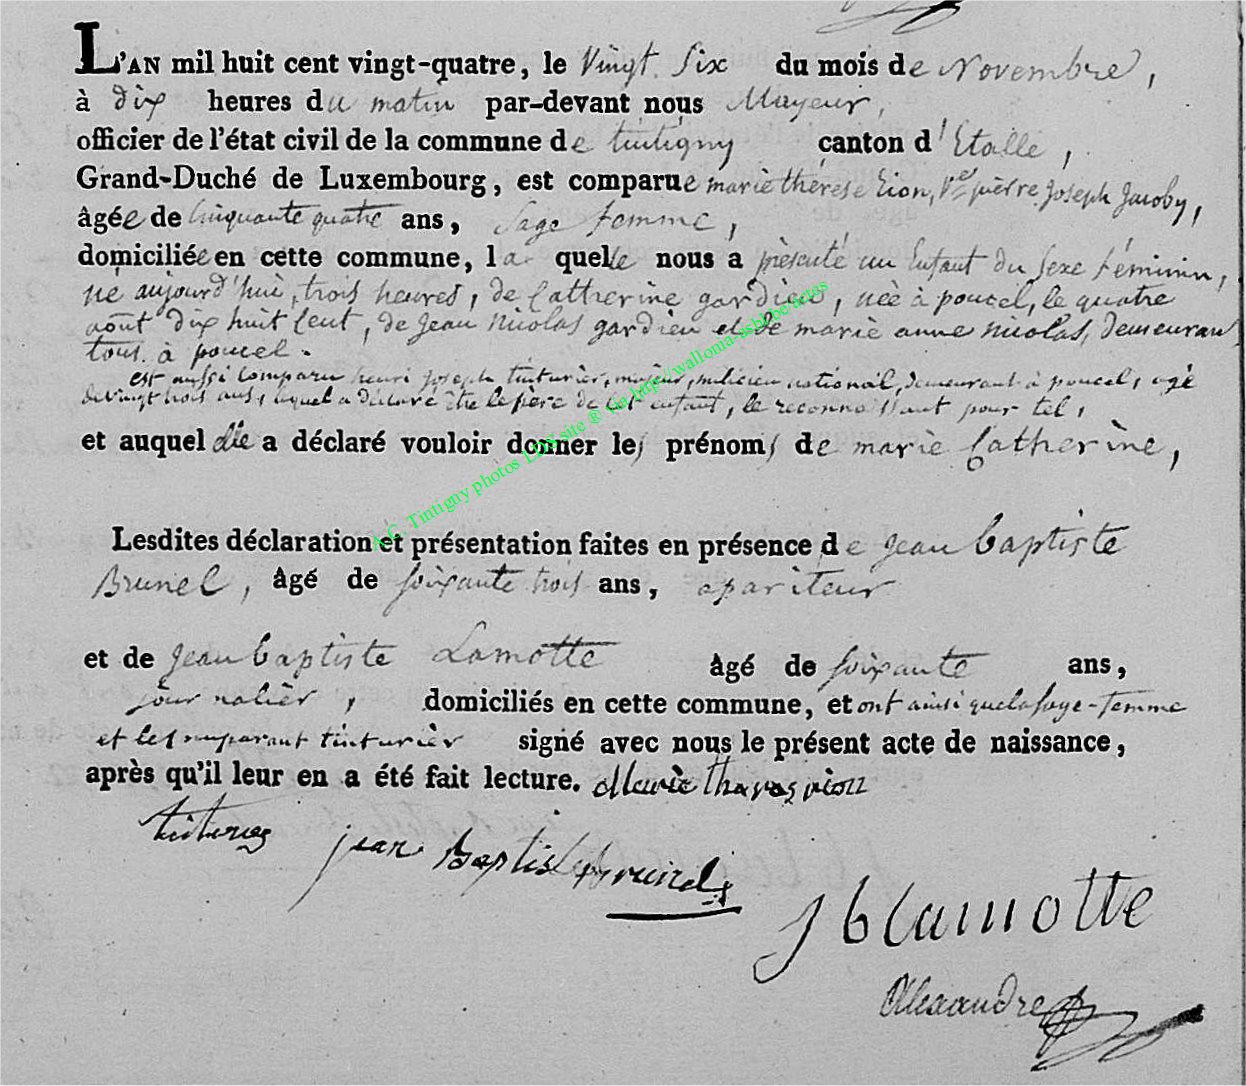 L'AN mil huit cent vingt-quatre, le vingt six du mois de Novembre,
à dix heures du matin par-devant nous Mayeur,
officier de l'état civil de la commune de tintigny canton d'Etalle,
Grand-Duché de Luxembourg, est comparue marie thérèse Zion, Ve pierre Joseph Jacoby,
âgée de Cinquante quatre ans, Sage femme,
domiciliée en cette commune, la quelle nous a présenté un Enfant du Sexe féminin,
né aujourd'hui, trois heures, de Catherine gardieu, née à poncel, le quatre
août dix huit Cent, de Jean Nicolas gardieu et de marie anne nicolas, demeurant
tous à poncel.
est aussi Comparu henri joseph tinturier, majeur, milicien national, demeurant à poncel, agé
de vingt trois ans, lequel a déclaré être le père de cet enfant, le reconnaissant pour tel,
et auquel elle a déclaré vouloir donner les prénoms de marie Catherine,
Lesdites déclaration et présentation faites en présence de Jean baptiste
Brunel, âgé de soixante trois ans, apariteur
et de Jean baptiste Lamotte âgé de soixante ans,
journalier, domiciliés en cette commune, et ont ainsi que la sage-femme
et le comparant tinturier signé avec nous le présent acte de naissance,
après qu'il leur en a été fait lecture. Marie
jean Baptiste Brunel
J b lamotte
Alexandre
A.C. Tintigny photos LDS site ® via http://walloma-asbl.be/actes